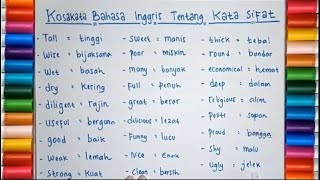 Kosakata Bahasa Inggris Tentang Kata Sifat
- Tall = tinggi
- Wise = bijaksana
- Wet = basah
- dry = kering
- diligent = rajin
- Useful = berguna
- good = baik
- Weak = lemah
- Strong = kuat
- sweet = manis
- poor = miskin
- Many = banyak
- Full = penuh
- great = besar
- delicious = lezat
- Funny = lucu
- nice = Enak
- clean = bersih
- thick = tebal
- round = bundar
- economical = hemat
- deep = dalam
- religious = alim
- polite = sopan
- proud = bangga
- shy = malu
- ugly = jelek